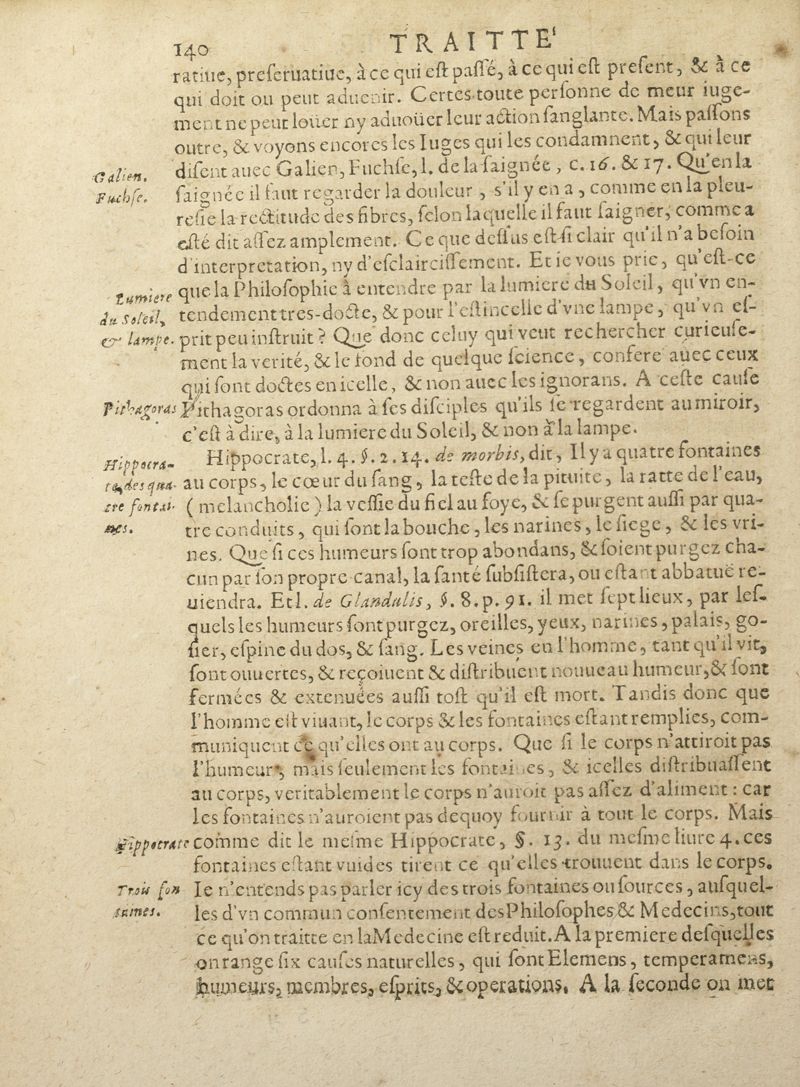 140 TRAITTE'
ratiue, preseruatiue, à ce qui est passé, à ce qui est present, & à ce
qui doit ou peut aduenir. Certes toute personne de meur iuge-
ment ne peut loüer ny aduoüer leur action sanglante. Mais passons
outre, & voyons encores les Iuges qui les condamnent, & qui leur
Galien. disent auec Galien, Fuchse, l. de la saignée, c. 16. & 17. Qu'en la
Fuchse. saignée il faut regarder la douleur, s'il y en a, comme en la pleu-
resie la rectitude des fibres, selon laquelle il faut saigner, comme a
esté dit assez amplement. Ce que dessus est si clair qu'il n'a besoin
d'interpretation, ny d'esclaircissement. Et ie vous prie, qu'est-ce
Lumiere que la Philosophie à entendre par la lumiere du Soleil, qu'vn en-
du Soleil, tendement tres-docte, & pour l'estincelle d'vne lampe, qu'vn es-
& lampe. prit peu instruit? Que donc celuy qui veut rechercher curieuse-
ment la verité, & le fond de quelque science, confere auec ceux
qui sont doctes en icelle, & non auec les ignorans. A ceste cause
Pithagoras Pithagoras ordonna à ses disciples qu'ils se regardent au miroir,
c'est à dire, à la lumiere du Soleil, & non à la lampe.
Hippocra- Hippocrate, l. 4. §. 2. 14. de morbis, dit, Il y a quatre fontaines
te, des qua- au corps, le cœur du sang, la teste de la pituite, la ratte de l'eau,
tre fontai- (melancholie) la vessie du fiel au foye, & se purgent aussi par qua-
nes. tre conduits, qui sont la bouche, les narines, le siege, & les vri-
nes. Que si ces humeurs sont trop abondans, & soient purgez cha-
cun par son propre canal, la santé subsistera, ou estant abbatuë re-
uiendra. Et l. de Glandulis, §. 8. p. 91. il met sept lieux, par les-
quels les humeurs sont purgez, oreilles, yeux, narines, palais, go-
sier, espine du dos, & sang. Les veines en l'homme, tant qu'il vit,
sont ouuertes, & reçoiuent & distribuent nouueau humeur, & sont
fermées & extenuées aussi tost qu'il est mort. Tandis donc que
l'homme est viuant, le corps & les fontaines estant remplies, com-
muniquent ce qu'elles ont au corps. Que si le corps n'attiroit pas
l'humeur, mais seulement les fontaines, & icelles distribuassent
au corps, veritablement le corps n'auroit pas assez d'aliment: car
les fontaines n'auroient pas dequoy fournir à tout le corps. Mais
Hippocrate comme dit le mesme Hippocrate, §. 13. du mesme liure 4. ces
fontaines estant vuides tirent ce qu'elles trouuent dans le corps.
Trois fon Ie n'entends pas parler icy des trois fontaines ou sources, ausquel-
taines. les d'vn commun consentement des Philosophes & Medecins, tout
ce qu'on traitte en la Medecine est reduit. A la premiere desquelles
on range six causes naturelles, qui sont Elemens, temperamens,
humeurs, membres, esprits, & operations. A la seconde on met